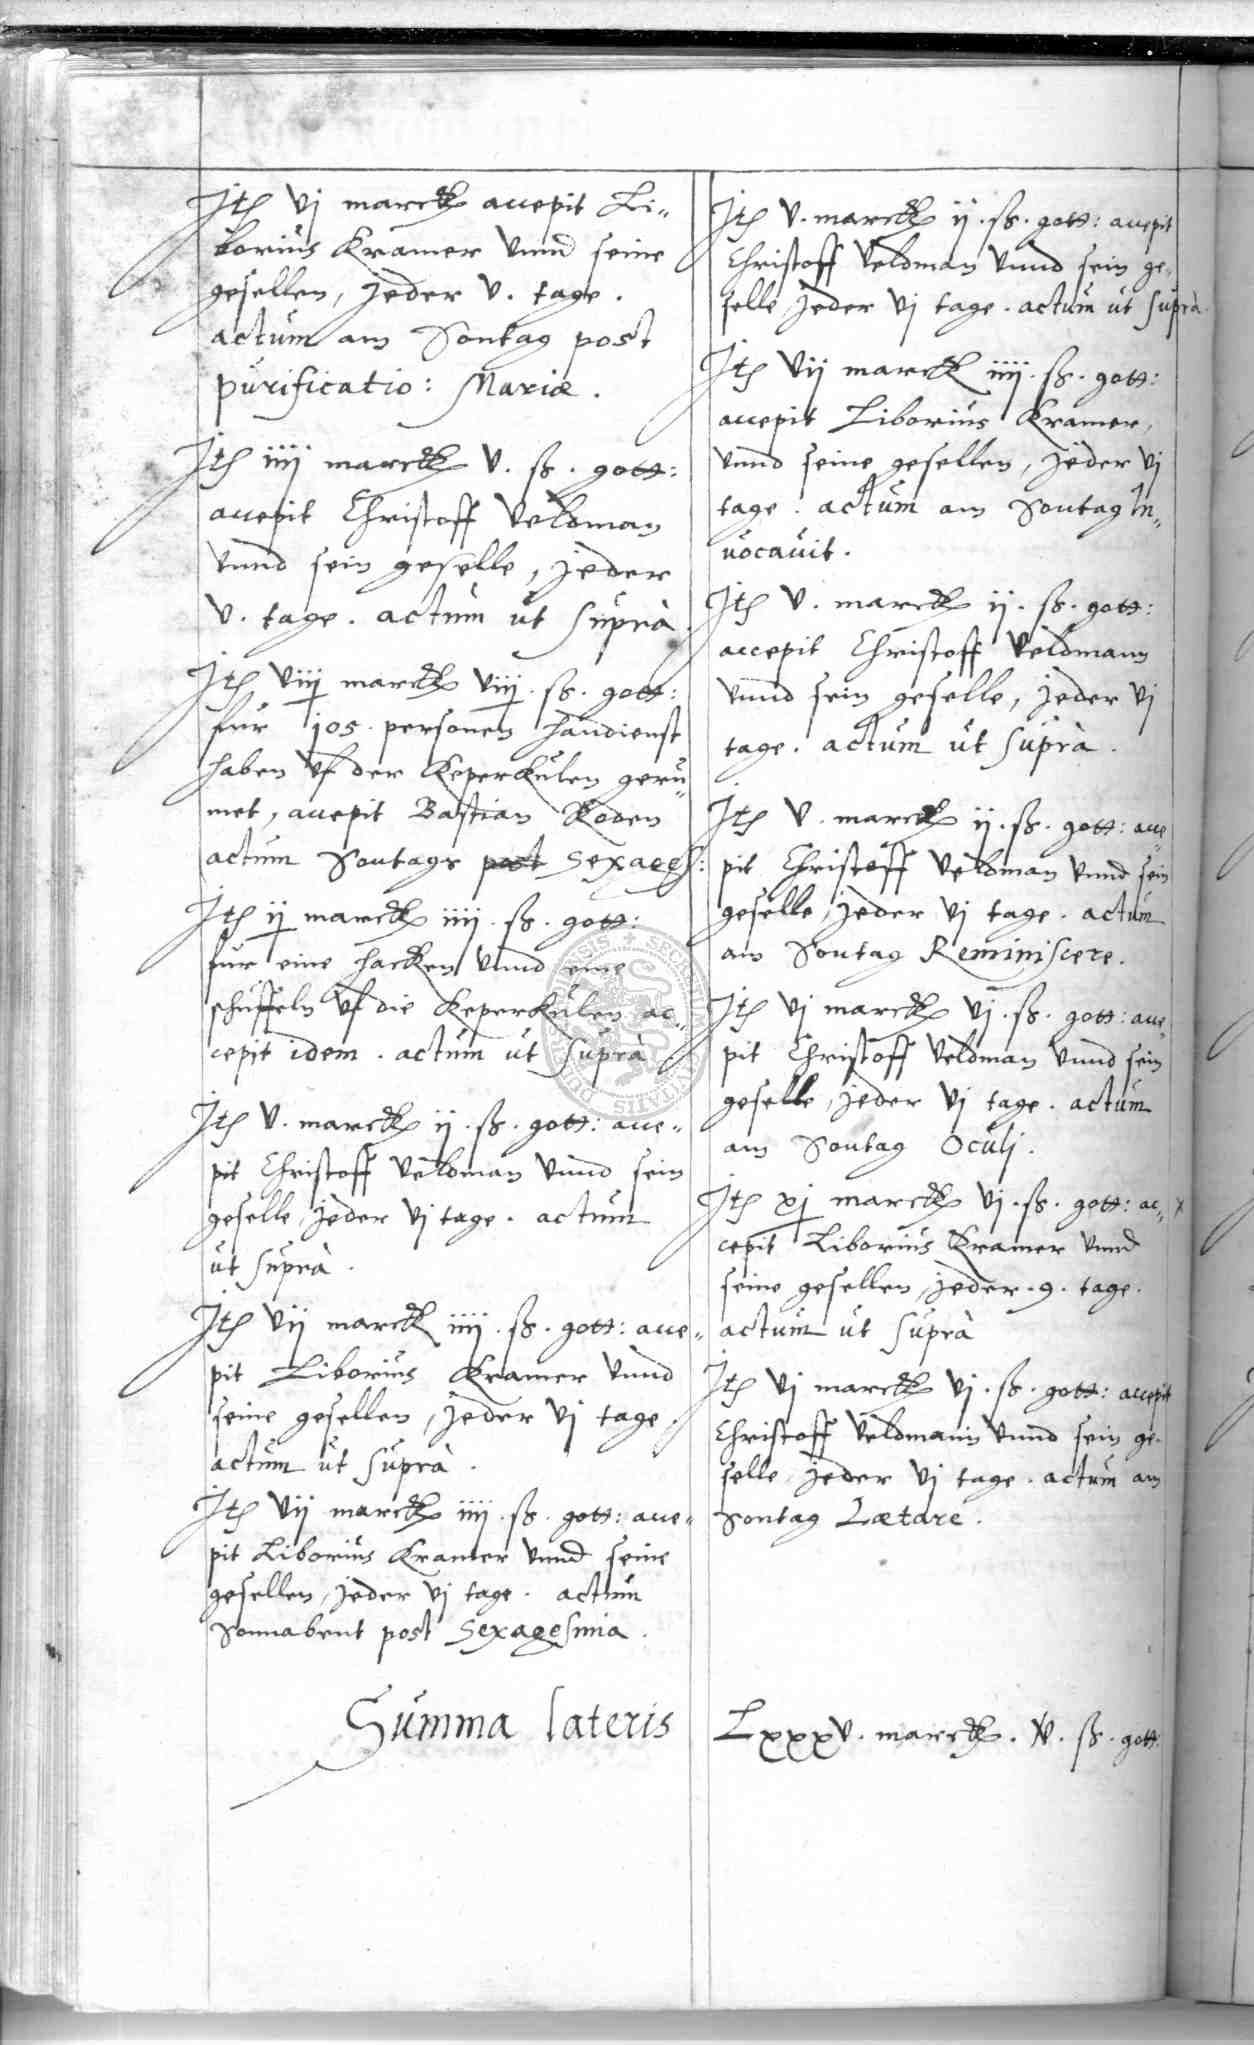 Jtē vj marck accepit Li-
borius Kramer vnnd seine
gesellen, Jeder v. tage.
actum am Sontag post
purificatio: Mariæ.
Jtē iiij marck v. ß. gott:
accepit Christoff Veldman
vnnd sein geselle, Jeder
v. tage. actum ut suprà.
Jtē viij marck viij. ß. gott:
fur 105. personen handienst
haben vf der Keperkulen geru-
met, accepit Bastian Koden
actum Sontags post Sexages:
Jtē ij marck iiij. ß. gott:
fur eine hacken vnnd eine
schuffeln vf die Keperkulen ac-
cepit idem. actum ut suprà.
Jtē v. marck ij. ß. gott: acce-
pit Christoff Veldman vnnd sein
geselle, Jeder vj tage. actum
ut suprà.
Jtē vij marck iiij. ß. gott: acce-
pit Liborius Kramer vnnd
seine gesellen, Jeder vj tage.
actum ut suprà.
Jtē vij marck iiij. ß. gott: acce-
pit Liborius Kramer vnnd seine
gesellen, Jeder vj tage. actum
Sonnabent post Sexagesima.
Summa lateris
Jtē v. marck ij. ß. gott: accepit
Christoff Veldman vnnd sein ge-
selle Jeder vj tage. actum ut suprà.
Jtē vij marck iiij. ß. gott:
accepit Liborius Kramer,
vnnd seine gesellen, Jeder vj
tage. actum am Sontag In-
uocauit.
Jtē v. marck ij. ß. gott:
accepit Christoff Veldmann
vnnd sein geselle, Jeder vj
tage. actum ut suprà.
Jtē v. marck ij. ß. gott: acce-
pit Christoff Veldman vnnd sein
geselle, Jeder vj tage. actum
am Sontag Reminiscere.
Jtē vj marck vj. ß. gott: acce-
pit Christoff Veldman vnnd sein
geselle, Jeder vj tage. actum
am Sontag Oculj.
Jtē xj marck vj. ß. gott: ac-
cepit Liborius Kramer vnnd
seine gesellen, Jeder. 9. tage.
actum ut suprà
Jtē vj marck vj. ß. gott: accepit
Christoff Veldmann vnnd sein ge-
selle, Jeder vj tage. actum am
Sontag Lætare.
Lxxxv. marck. v. ß. gott: